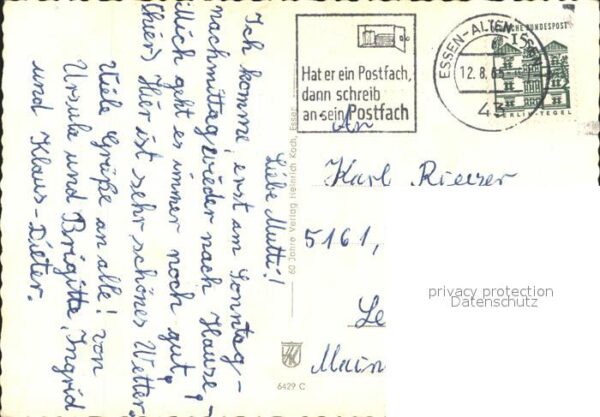 Liebe Mutti!
Ich komme erst am Sonntag-
nachmittag wieder nach Hause,
geht es immer noch gut?
(hier) Hier ist sehr schönes Wetter.
Viele Grüße an alle! von
Ursula und Brigitte, Ingrid
und Klaus-Dieter.
60 Jahre Verlag Heinrich Koch, Essen
6429 C
Hat er ein Postfach,
dann schreib
an sein Postfach
ESSEN-ALTENESSEN
12.8.65
43
DEUTSCHE BUNDESPOST
BERLIN-TEGEL
An
Karl
5161,
Le
Main
privacy protection
Datenschutz